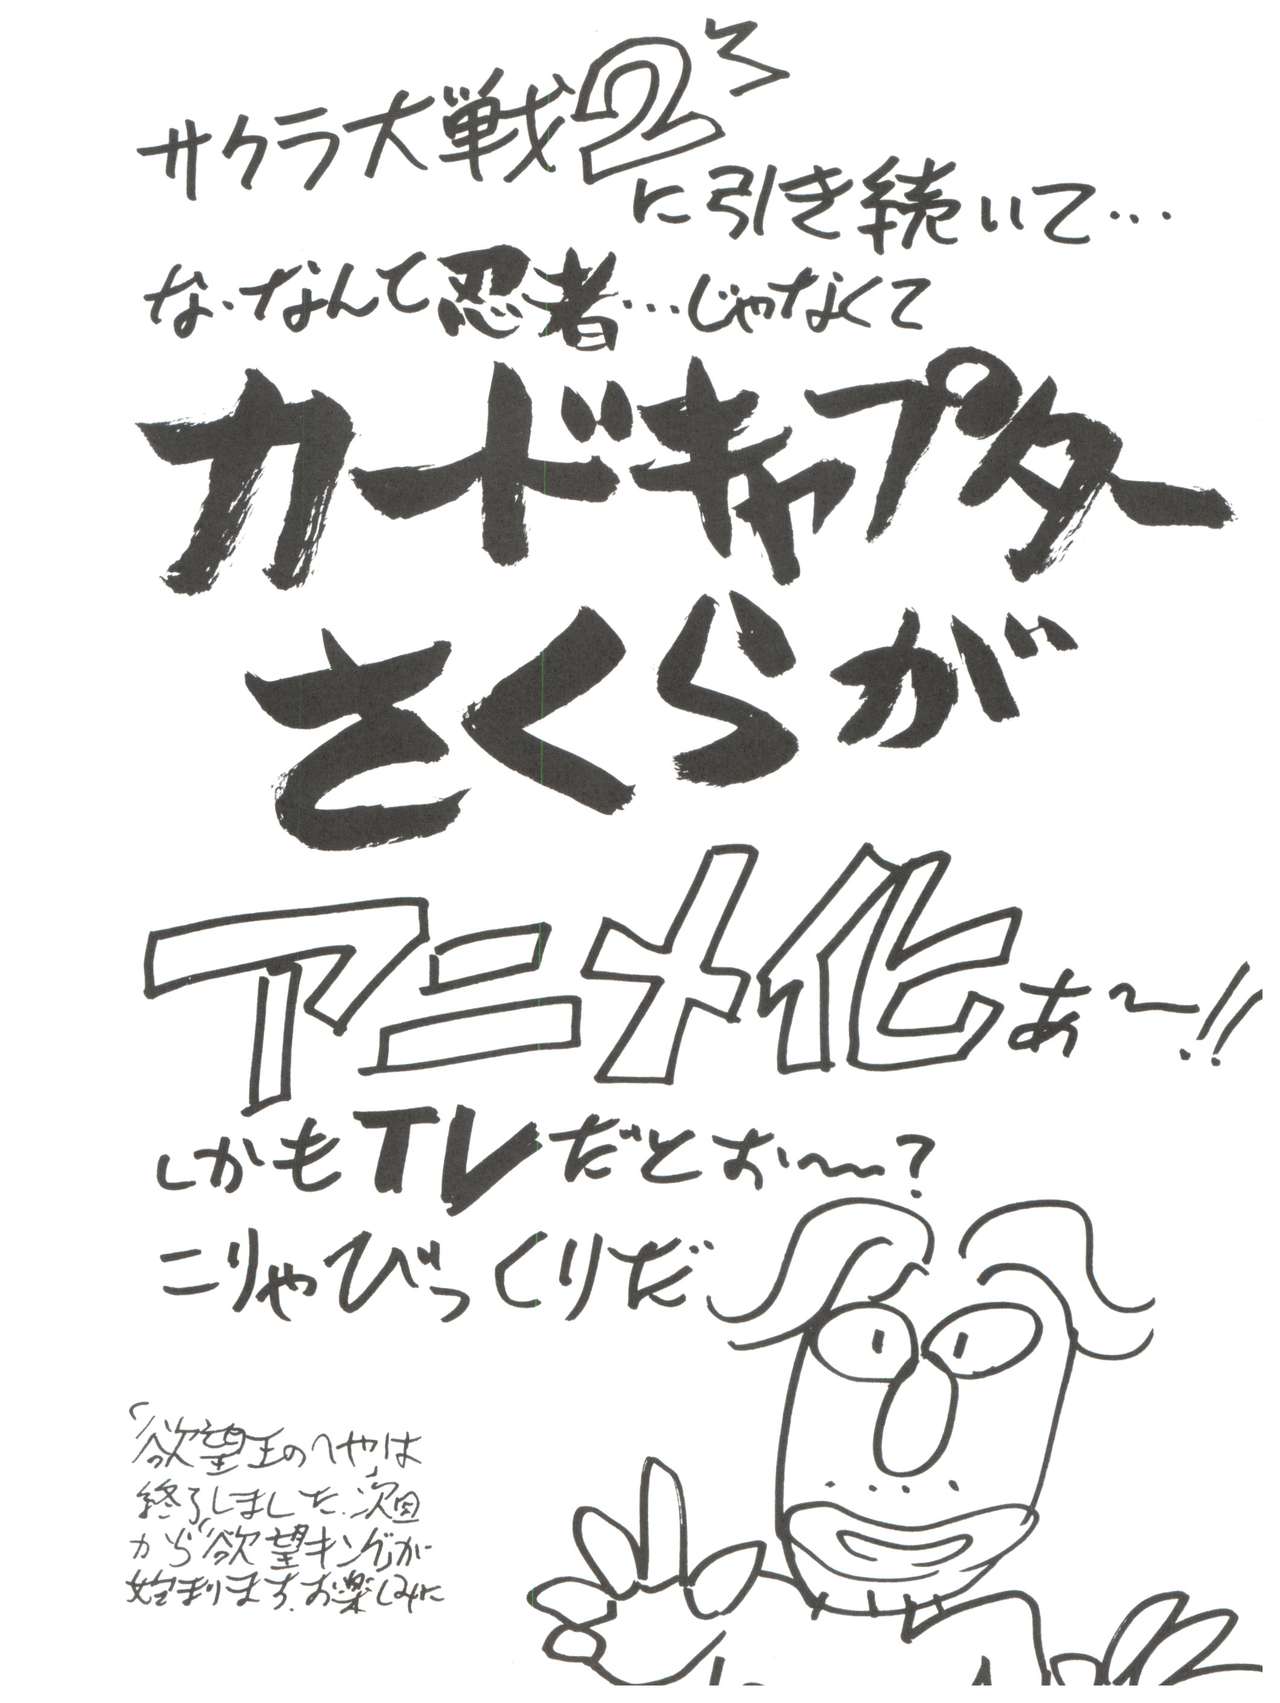 サクラ大戦2
に引き続いて…
な・なんて忍者…じゃなくて
カードキャプター
さくらが
アニメ化ぁ〜!!
しかもTVだとぉ〜?
こりゃびっくりだ
「欲望王のへや」は
終了しました。次回
から「欲望キング」が
始まります。お楽しみに